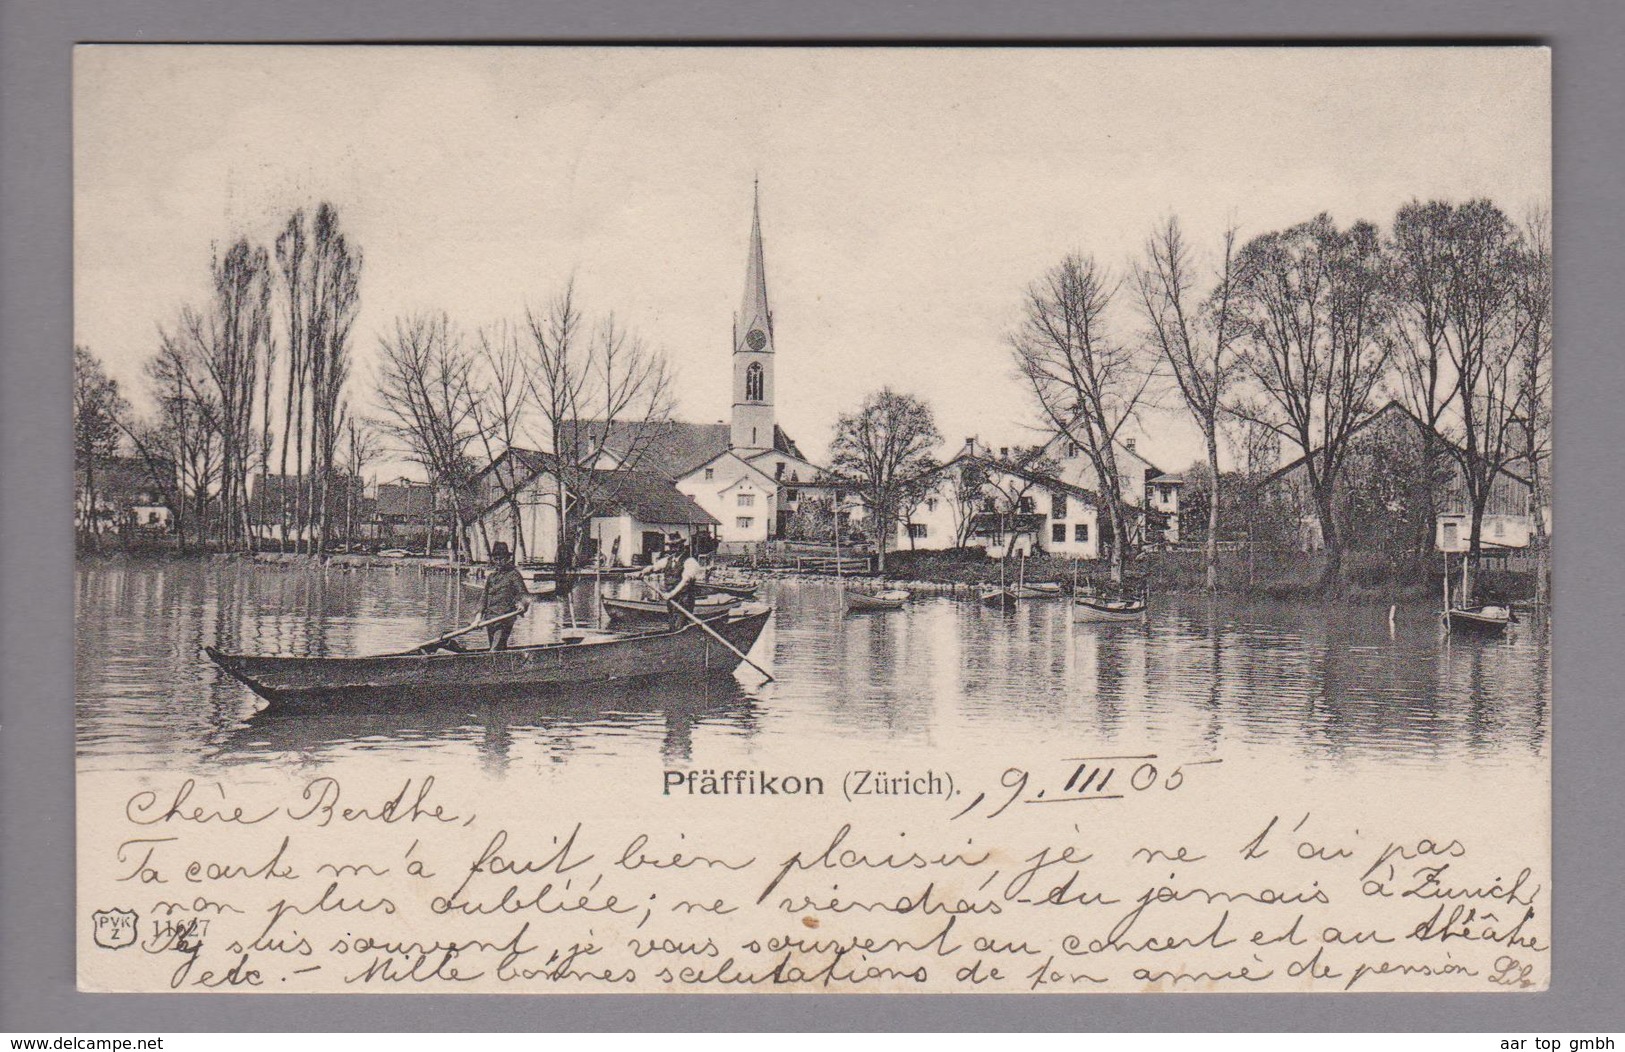 Pfäffikon (Zürich). , 9. III 05
Chère Berthe,
Ta carte m'a fait bien plaisir, je ne t'ai pas
non plus oubliée; ne viendras-tu jamais à Zurich,
PVK Z 11627 J'y suis souvent, je vais souvent au concert et au théâtre
etc. – Mille bonnes salutations de ton amie de pension
delcampe.net
aar top gmbh